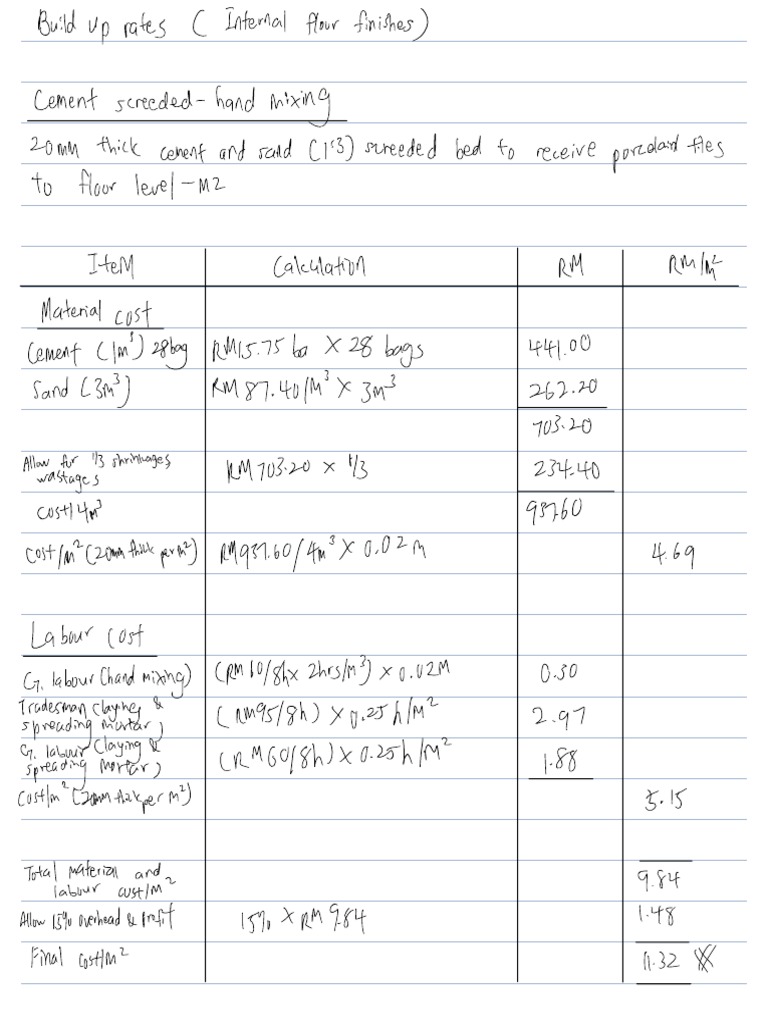 Build up rates ( Internal flour finishes)
Cement screeded - hand mixing
20mm thick cement and sand (1:3) screeded bed to receive porcelain tiles
to floor level - M2
Item Calculation RM RM/M²
Material cost
Cement (1m³) 28bag RM15.75 ba X 28 bags 441.00
Sand (3m³) RM 87.40/M³ X 3m³ 262.20
703.20
Allow for 1/3 shrinkages, RM 703.20 X 1/3 234.40
wastages
cost/4m³ 937.60
Cost/m² (20mm thick per m²) RM937.60/4m³ X 0.02 m 4.69
Labour cost
G. labour (hand mixing) (RM 60/8h x 2hrs/m³) x 0.02M 0.30
Tradesman claying & (RM95/8h) X 0.25h/M² 2.97
spreading mortar)
G. labour (laying & (RM60/8h) X 0.25h/M² 1.88
spreading mortar)
Cost/m² (20mm thick per m²) 5.15
Total material and 9.84
labour cost/m²
Allow 15% overhead & profit 15% X RM 9.84 1.48
Final cost/m² 11.32